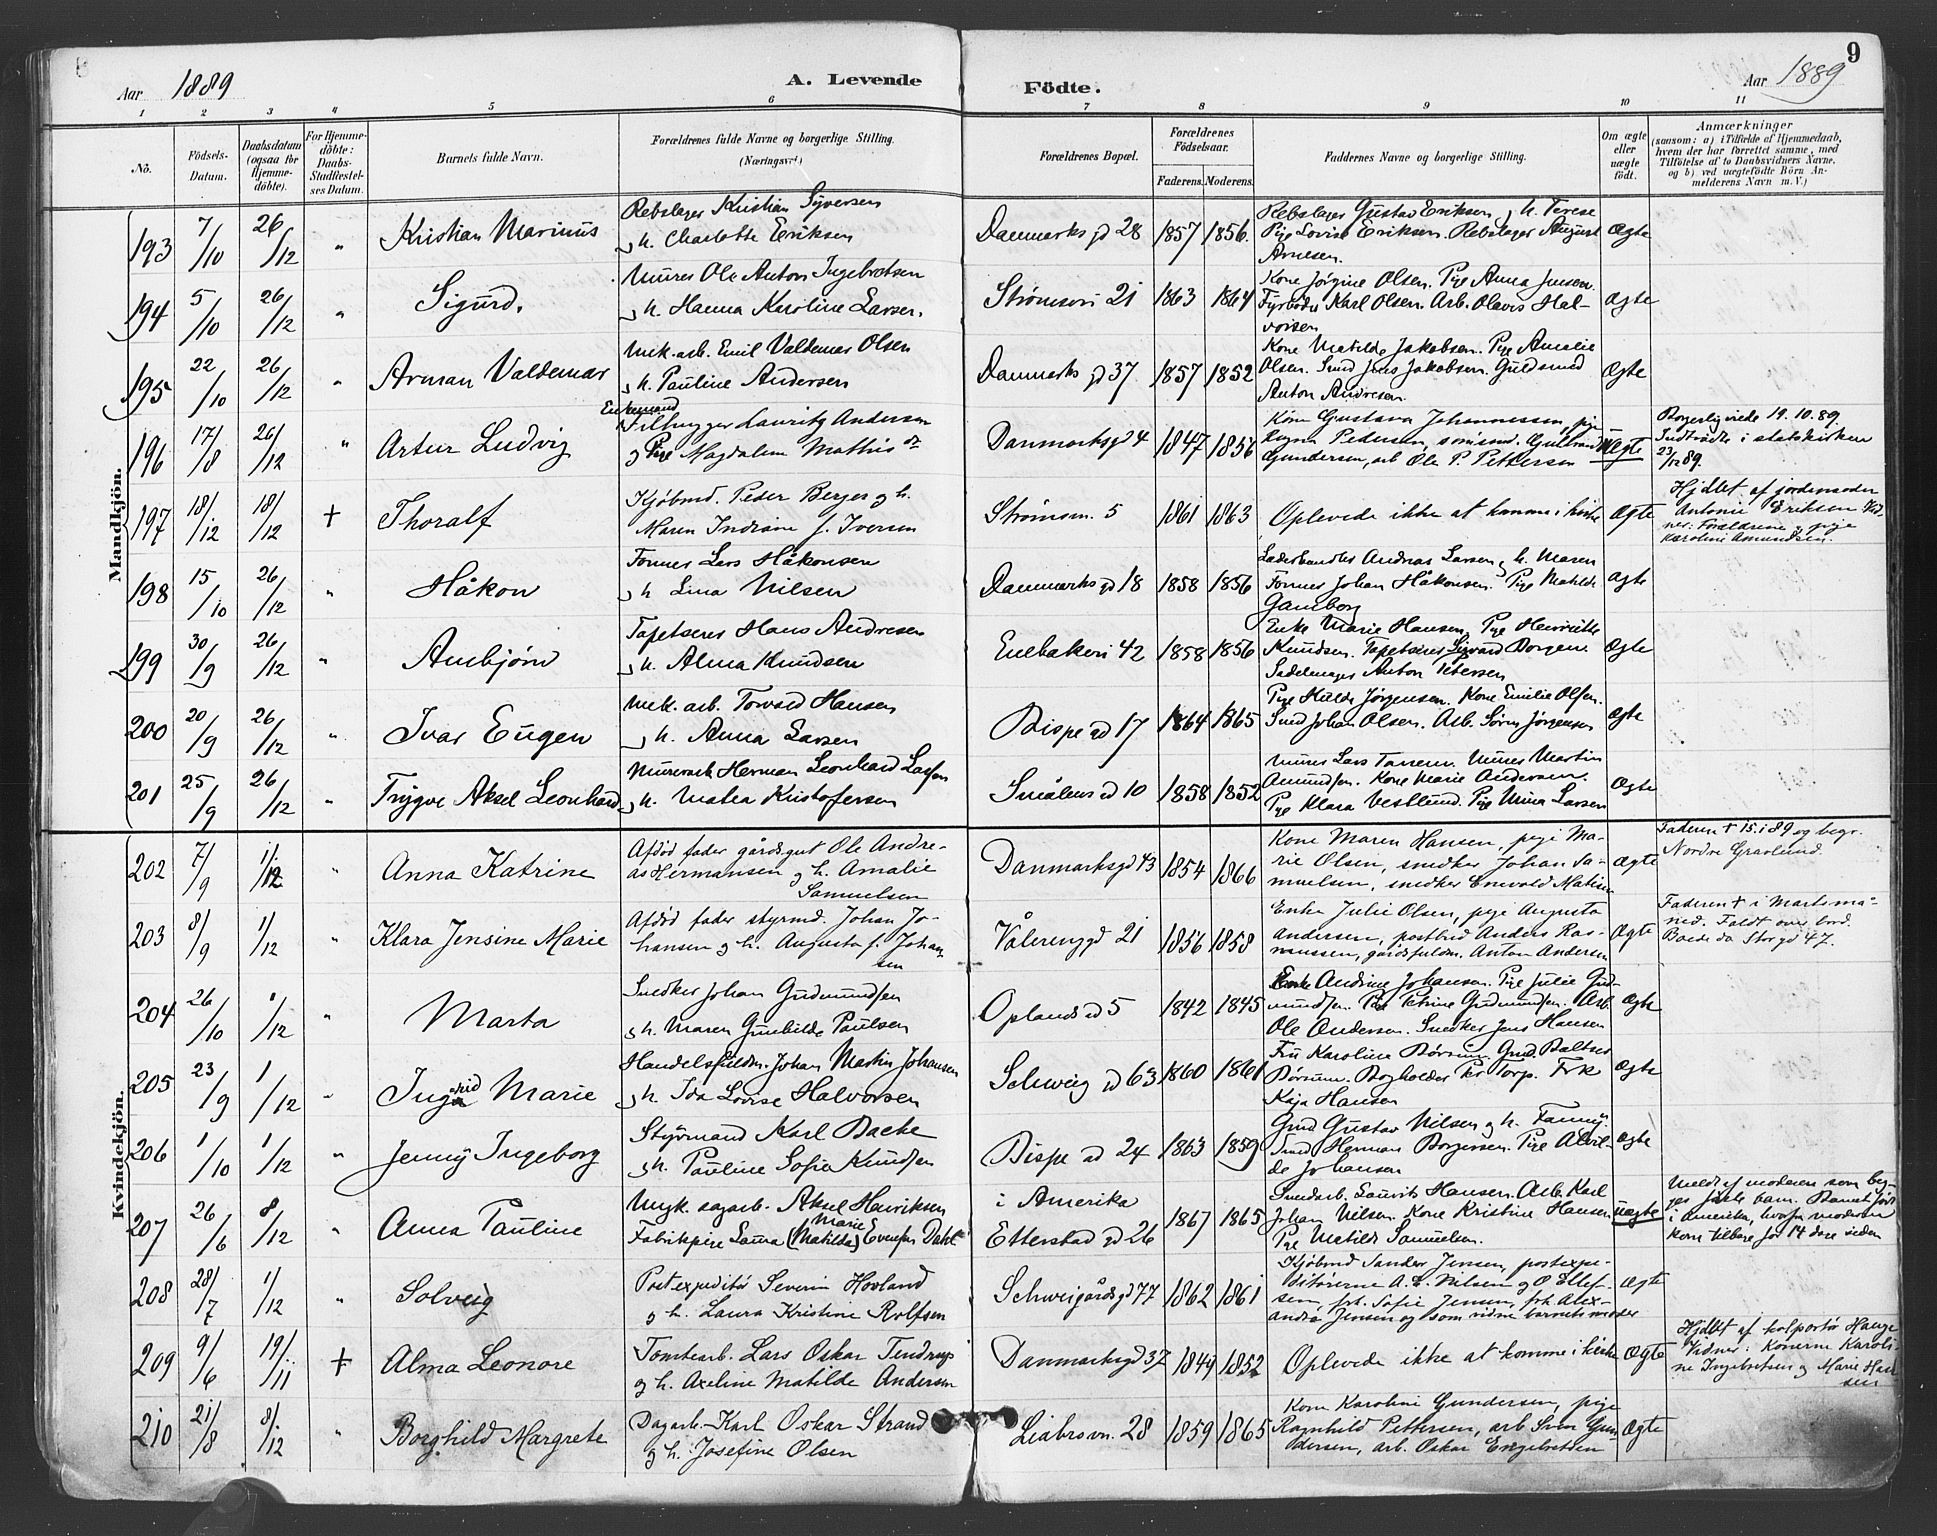 8
Aar 1889
A. Levende
Födte.
Aar 1889
9
1 2 3 4 5 6 7 8 9 10 11
No.
Födsels-Datum.
Daabsdatum (ogsaa for Hjemmedöbte).
For Hjemmedöbte: Daabs-Stadfæstelses Datum.
Barnets fulde Navn.
Forældrenes fulde Navne og borgerlige Stilling. (Næringsvei)
Forældrenes Bopæl.
Forældrenes Födselsaar.
Faderens. Moderens.
Faddernes Navne og borgerlige Stilling.
Om ægte eller uægte födt.
Anmærkninger
(saasom: a) i Tilfælde af Hjemmedaab, hvem der har forrettet samme, med Tilföielse af to Daabsvidners Navne. og b) ved uægtefödte Börn Anmelderens Navn m. V.)
Mandkjön.
193 7/10 26/12 " Kristian Marinus
Rebslager Kristian Syversen
og h. Charlotte Eriksen
Danmarksgd 28 1857 1856.
Rebslager Gustav Eriksen og h. Terese
Pige Lovise Eriksen. Rebslager August
Arnesen.
Ægte
194 5/10 26/12 " Sigurd.
Murer Ole Anton Ingebretsen
og h. Hanna Karoline Larsen.
Strømsvei 21 1863 1864
Kone Jørgine Olsen. Pige Anna Jensen.
Fyrbøder Karl Olsen. Arb. Olavis Hal-
vorsen
ægte
195 22/10 26/12 " Arman Valdemar
Mek. arb. Emil Valdemar Olsen
og h. Pauline Andersen
Danmarksgd 37. 1857 1852
Kone Matilde Jakobsen. Pige Amalie
Olsen. Smed Jens Jakobsen. Guldsmed
Anton Andresen.
Ægte
196 17/8 26/12 " Artur Ludvig
Enkemand
Filhugger Lauritz Andersen
og Pige Magdalene Mathisdr
Danmarksgd 4 1847 1856
Kone Gustava Johannessen, pige
Ragna Pedersen, Gulbrand
Gundersen, arb Ole P. Pettersen
Uægte
Borgerlig viede 19.10.89.
Indtrådte i statskirken
23/12 89.
197 18/12 18/12 + Thoralf
Kjøbmd. Peder Berger og h.
Maren Indiane f. Iversen
Strømsvn. 5 1861 1863
Oplevede ikke at komme i kirke
Ægte
Hjdbt. af jordemoder
Antonie Eriksen Vid-
ner: Forældrene og pige
Karoline Amundsen.
198 15/10 26/12 " Håkon
Former Lars Håkonsen
og h. Lina Nilsen
Danmarksgd 18 1858 1856
Læderhandler Andreas Larsen og h. Maren
Former Johan Håkonsen. Pige Matilde
Gamborg
ægte
199 30/9 26/12 " Arnbjørn
Tapetserer Hans Andresen
og h. Alma Knudsen
Enebakvei 42 1858 1856
Enke Marie Hansen. Pige Henriette
Knudsen. Tapetserer Sigvard Borgen.
Sadelmager Anton Petersen
Ægte
200 20/9 26/12 " Ivar Eugen
Mek. arb. Torvald Hansen
og h. Anna Larsen
Bispegd 17 1864 1865
Pige Hulda Jørgensen. Kone Emilie Olsen.
Smed Johan Olsen. Arb. Søren Jørgensen
ægte
201 25/9 26/12 " Trygve Aksel Leonhard
Murersv. Herman Leonhard Larsen
og h. Matea Kristofersen
Smålensgd 10 1858 1852
Murer Lars Tanem. Murer Martin
Amundsen. Kone Marie Andersen.
Pige Klara Vestlund. Pige Mina Larsen
Ægte
Kvindekjön.
202 7/9 1/12 " Anna Katrine
Afdød fader gårdsgut Ole Andre-
as Hermansen og h. Amalie
Samuelsen
Danmarksgd 43 1854 1866
Kone Maren Hansen, pige Ma-
rie Olsen, snedker Johan Sa-
muelsen, snedker Enevold Matisen
Ægte
Faderen + 15.1 89 og begr.
Nordre Gravlund.
203 8/9 1/12 " Klara Jensine Marie
Afdød fader styrmd. Johan Jo-
hansen og h. Augusta f. Johan-
sen
Vålerenggd 21 1856 1858
Enke Julie Olsen, pige Augusta
Andersen, postbud Anders Ras-
mussen, gårdsfuldm. Anton Andersen
Ægte
Faderen + i Martsmå-
ned. Faldt over bord.
Boede da Storgd 47.
204 26/10 1/12 " Marta
Snedker Johan Gudmundsen
og h. Maren Gunhilde Paulsen
Oplandsgd 5 1842 1845
Enke Andrine Johansen. Pige Julie Gud-
mundsen. Pige Petrine Gudmundsen. Arb.
Ole Andersen. Snedker Jens Hansen
Ægte
205 23/9 1/12 " Ingrid Marie
Handelsfuldm. Johan Martin Johansen
og h. Ida Lovise Halvorsen
Schweigd 63 1860 1861
Fru Karoline Børsum. Grd. Baltser
Børsum. Bogholder Per Torp. Frk
Kaja Hansen
Ægte
206 1/10 1/12 " Jenny Ingeborg
Styrmand Karl Bache
og h. Pauline Sofie Knudsen
Bispegd 24 1863 1859
Grd Gustav Nilsen og h. Fanny.
Smed Herman Borgersen. Pige Alvil-
de Johansen
ægte
207 26/6 8/12 " Anna Pauline
Ungk. sagarb. Aksel Henriksen
Fabrikpige Laura (Matilda) Marie Evensen Dahl
i Amerika
Etterstadgd 26 1867 1865
Smedarb. Laurits Hansen. Arb. Karl
Johan Nilsen. Kone Kristine Hansen
Pige Matilde Samuelsen.
uægte
Meldt af moderen som be-
ges første barn. Barnet født
i Amerika, hvorfra moderen
kom tilbage for 14 dage siden
208 28/7 1/12 " Solveig
Postexpeditør Severin Hovland
og h. Laura Kristine Rolfsen
Schweigårdsgd 77 1862 1861
Kjøbmd Sander Jensen, postexpe-
ditørerne A. E. Nilsen og O Ellef-
sen, frk. Sofie Jensen, frk Alex-
andra Jensen og som vidne barnets moder
Ægte
209 9/6 19/11 + Alma Leonore
Tomtearb. Lars Oskar Tendrup
og h. Axeline Matilde Andersen
Danmarksgd 37 1849 1852
Oplevede ikke at komme i kirke
Ægte
Hjdbt af kolportør Hauge
Vidner: Konerne Karoli-
ne Ingebretsen og Marie Han-
sen
210 21/8 8/12 " Borghild Margrete
Dagarb. Karl Oskar Strand
og h. Josefine Olsen
Liabrovn. 28 1859 1865
Kone Karoline Gundersen, pige
Ragnhild Pettersen, arb Sven Gun-
dersen, arb. Oskar Engebretsen
Ægte